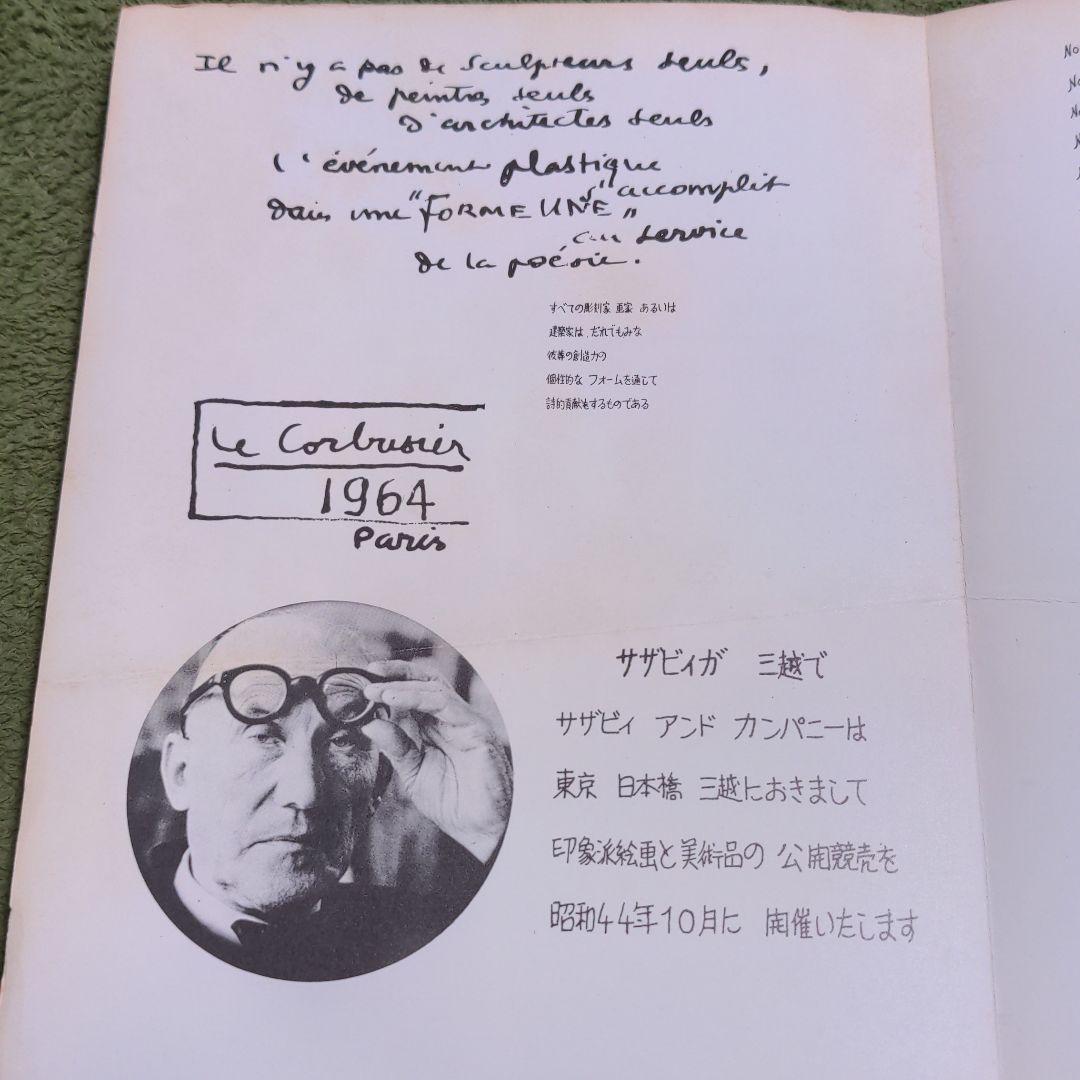 Il n'y a pas de sculpteurs seuls,
de peintres seuls
d'architectes seuls
l'événement plastique
s'accomplit
dans une "FORME UNE"
au service
de la poésie.
すべての彫刻家 画家 あるいは
建築家は だれでもみな
彼等の創造力の
個性的な フォームを通じて
詩的貢献をするものである
Le Corbusier
1964
Paris
サザビィが 三越で
サザビィ アンド カンパニーは
東京 日本橋 三越におきまして
印象派絵画と美術品の 公開競売を
昭和44年10月に 開催いたします
No